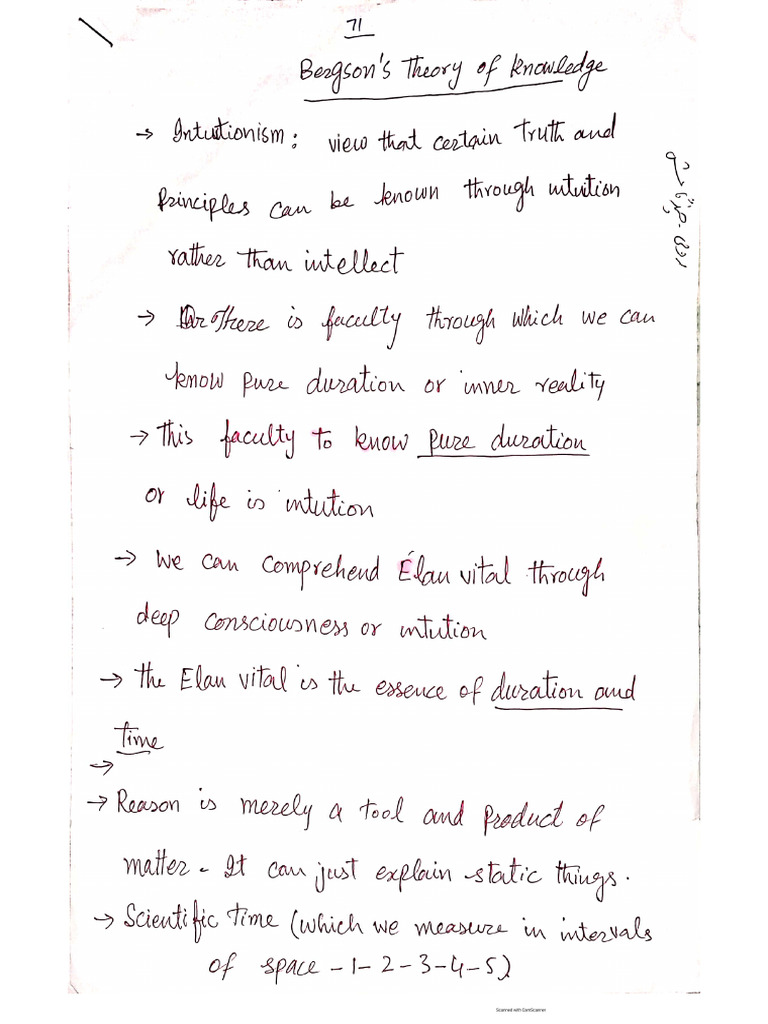 71
Bergson's Theory of knowledge
→ Intutionism: view that certain Truth and
Principles can be known through intuition
rather than intellect
→ There is faculty through which we can
know pure duration or inner reality
→ this faculty to know pure duration
or life is intution
→ We can comprehend Élan vital through
deep consciousness or intution
→ the Elan vital is the essence of duration and
time
→
→ Reason is merely a tool and product of
matter. It can just explain static things.
→ Scientific Time (which we measure in intervals
of space -1-2-3-4-5)
Scanned with CamScanner